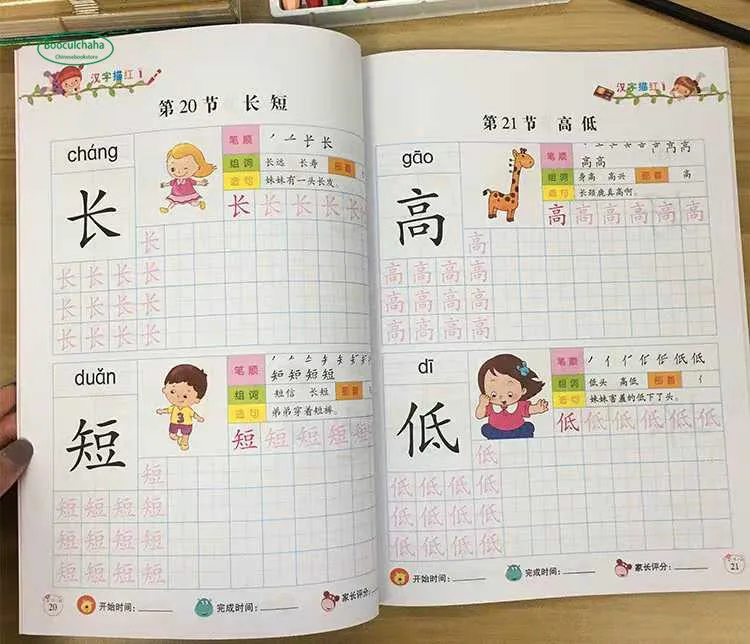 Booculchaha
Chinesebookstore
汉字描红1
第20节 长 短
cháng
长
笔 顺
长 长
组 词 长远 长寿 部首
造 句 妹妹有一头长发。
长 长 长 长 长 长
长
长 长 长 长
长 长 长 长
长 长 长 长
duǎn
短
3
笔 顺
短 短 短 短
组 词 短信 长短 部首
造 句 弟弟穿着短裤。
短 短 短 短 短
短
短 短 短 短
短 短 短 短
短 短 短 短
20 开始时间: 完成时间: 家长评分:
汉字描红1
第21节 高 低
gāo
高
笔 顺
高 高
组 词 身高 高兴 部首 高
造 句 长颈鹿真高啊。
高 高 高 高 高 高
高
高 高 高 高
高 高 高 高
高 高 高 高
dī
低
笔 顺 丿 亻 低 低
组 词 低头 高低 部首 亻
造 句 妹妹害羞的低下了头。
低 低 低 低 低 低
低
低 低 低 低
低 低 低 低
低 低 低 低
开始时间: 完成时间: 家长评分: 21